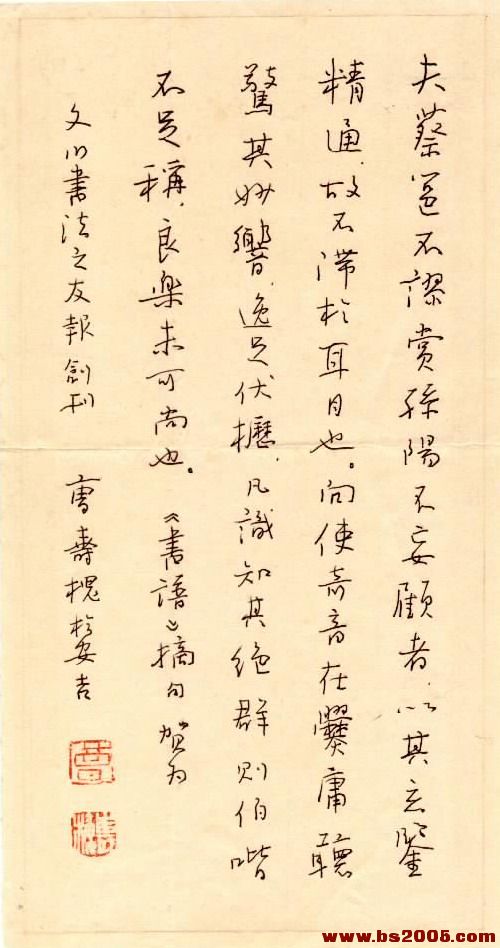 夫蔡邕不謬賞孫陽不妄顧者,以其玄鑒
精通,故不滯於耳目也。向使奇音在爨庸聽
驚其妙響,逸足伏櫪,凡識知其絕群則伯喈
不足稱,良樂未可尚也。《書譜》摘句 賀为
文書法之友報創刊 曹壽槐於安吉
www.bs2005.com